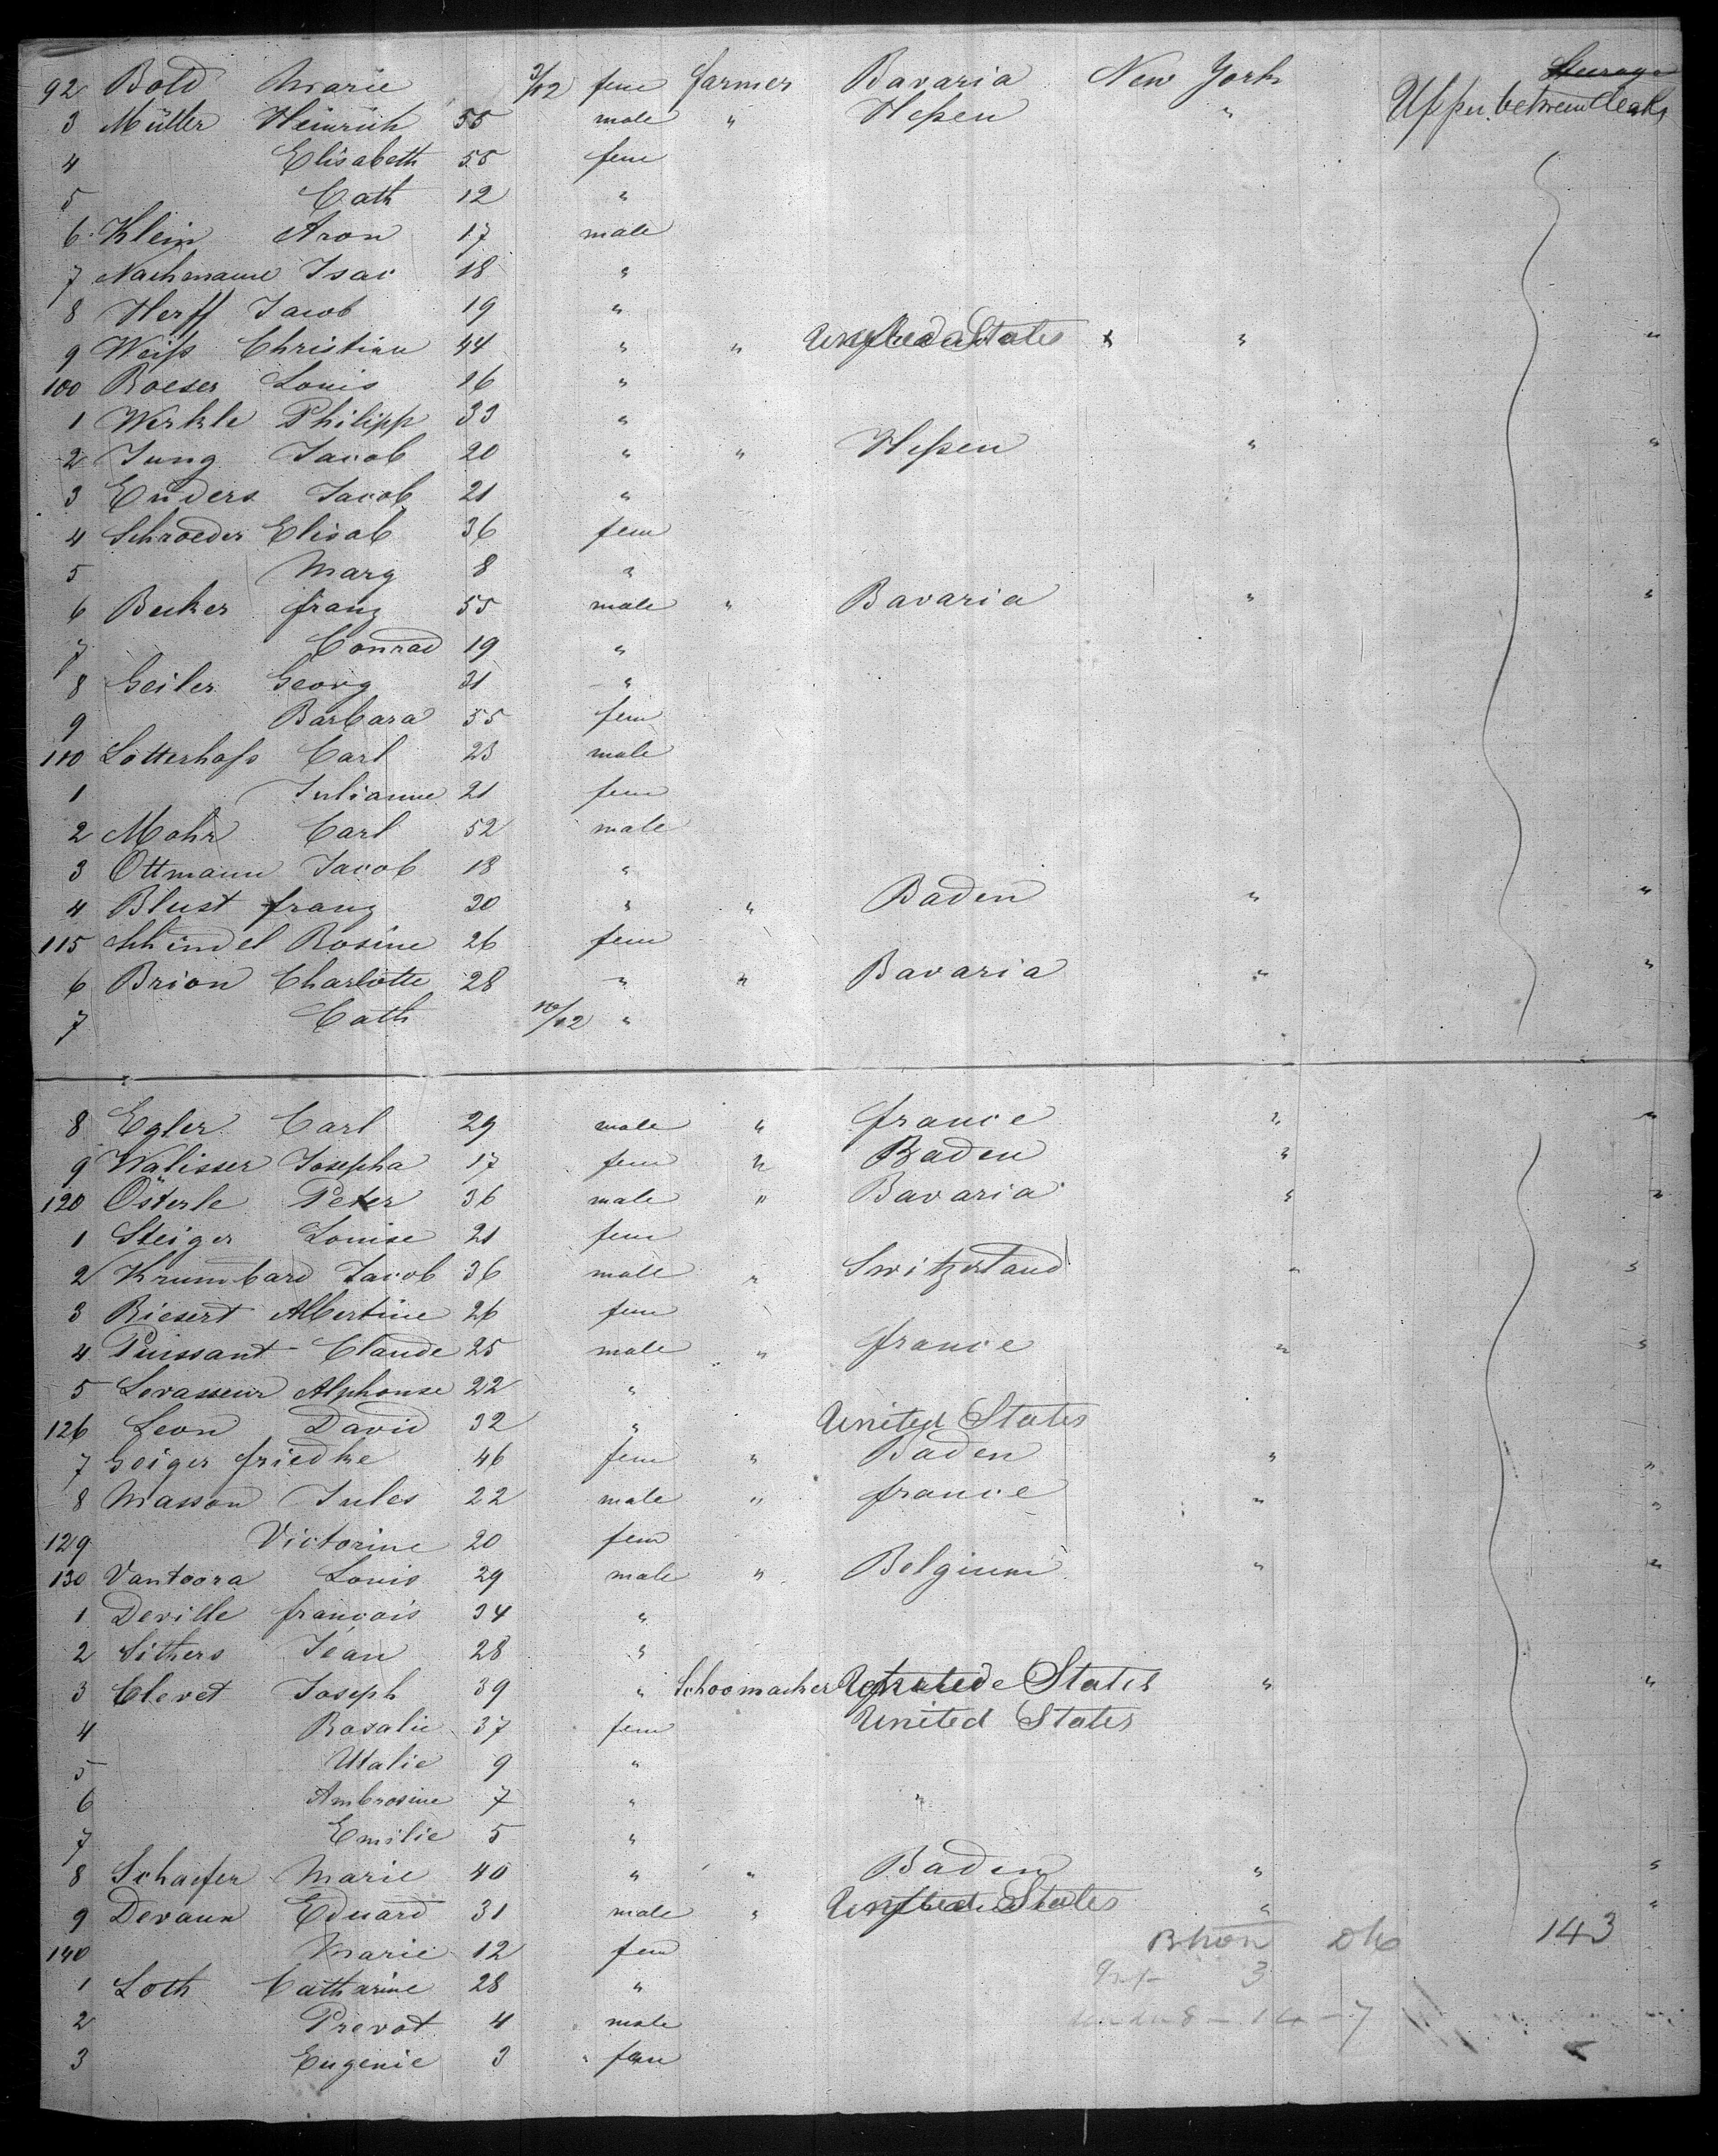 92 Bold Marie 3/12 fem farmer Bavaria New York Steerage
3 Müller Heinrich 55 male " Heßen " Upper between decks
4 Elisabeth 55 fem
5 Cath 12 "
6 Klein Aron 17 male
7 Nachmann Isac 18 "
8 Herff Jacob 19 "
9 Weiß Christian 44 " " United States " "
100 Roeser Louis 16 "
1 Werkle Philipp 33 "
2 Jung Jacob 20 " " Heßen " "
3 Enders Jacob 21 "
4 Schroeder Elisab 36 fem
5 Marg 8 "
6 Becker franz 55 male " Bavaria " "
7 Conrad 19 "
8 Geiler Georg 31 "
9 Barbara 55 fem
110 Lotterhoß Carl 23 male
1 Julianne 21 fem
2 Mohr Carl 52 male
3 Ottmann Jacob 18 "
4 Blust franz 20 " " Baden " "
115 Schindel Rosine 26 fem
6 Brion Charlotte 28 " " Bavaria " "
7 Cath 10/12 " "
8 Egler Carl 29 male " france " "
9 Walisser Josepha 17 fem " Baden "
120 Österle Peter 36 male " Bavaria " "
1 Steiger Louise 21 fem
2 Krumbard Jacob 36 male " Switzerland " "
3 Riesert Albertine 26 fem
4 Puissant Claude 25 male " france " "
5 Levasseur Alphonse 22 "
126 Leon David 32 " United States
7 Geiger friedke 46 fem " Baden " "
8 Masson Jules 22 male " france " "
129 Victorine 20 fem
130 Vantoora Louis 29 male " Belgium " "
1 Deville françois 34 "
2 Sithers Jean 28 "
3 Clevet Joseph 39 " Schoomacher United States " "
4 Rosalie 37 fem United States
5 Utalie 9 "
6 Ambrosine 7 " "
7 Emilie 5 "
8 Schaefer Marie 40 " " Baden " "
9 Devaux Eduard 31 male " United States " "
140 Marie 12 fem 143
1 Loth Catharine 28 " 3
2 Prevot 4 male 14 - 7
3 Eugenie 3 fem